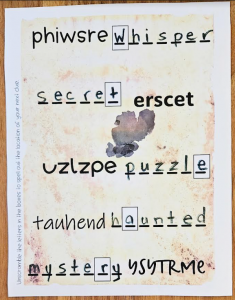 phiwsre whisper
secret erscet
uzlzpe puzzle
tauhend haunted
mystery YSYTRME
Unscramble the letters in the boxes to spell out the location of your next clue.